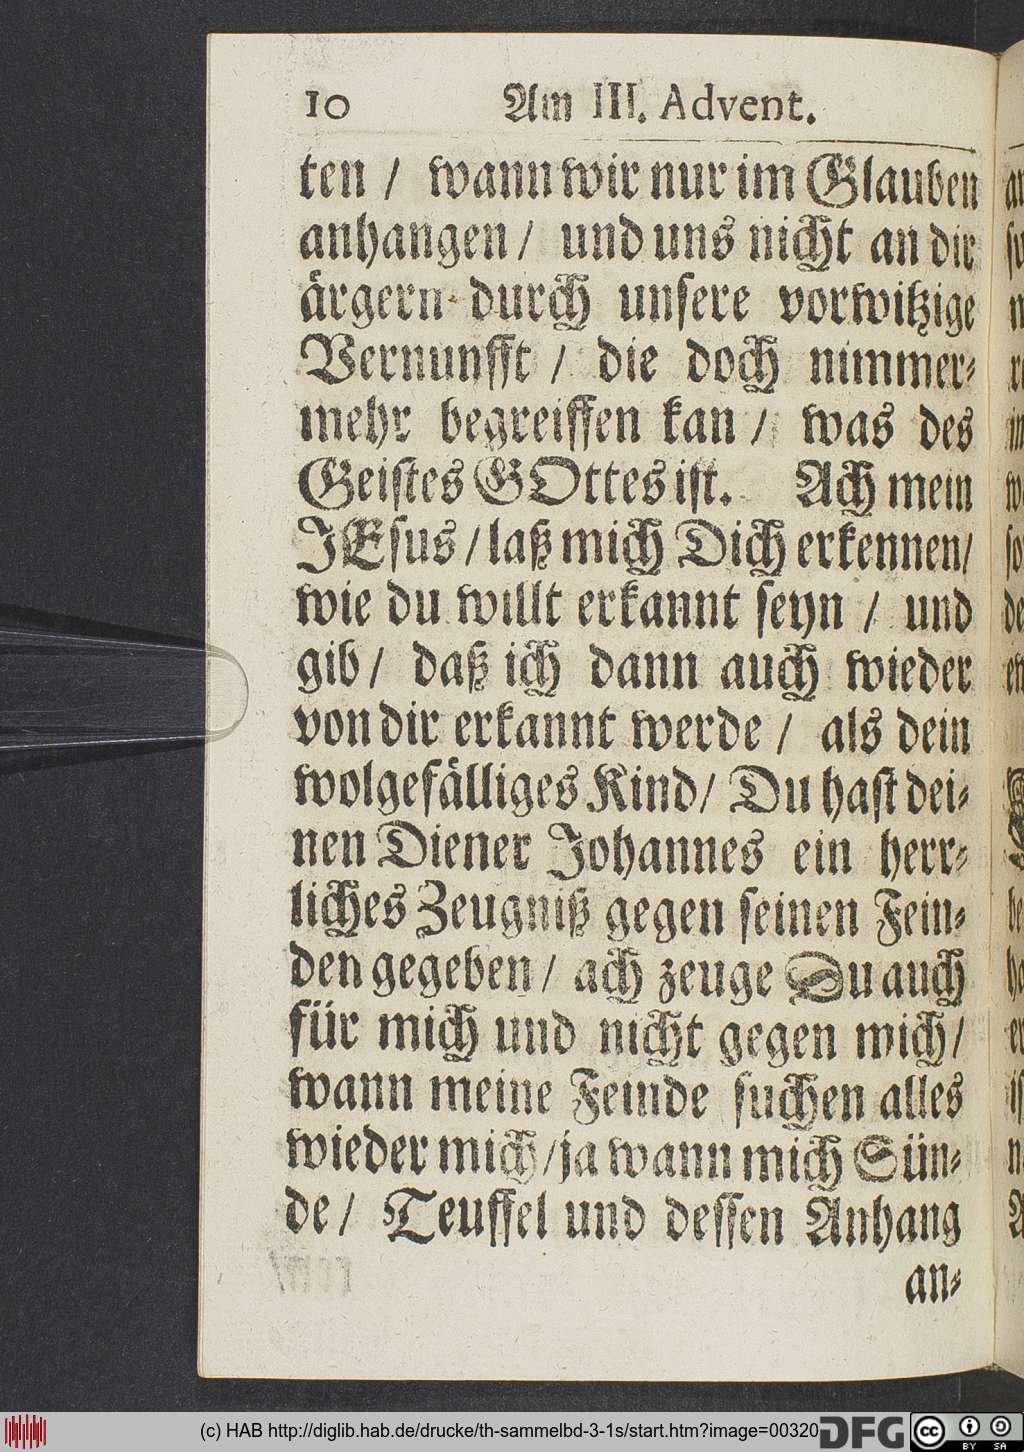 10 Am III. Advent.
ten / wann wir nur im Glauben
anhangen / und uns nicht an dir
ärgern durch unsere vorwitzige
Vernunfft / die doch nimmer-
mehr begreiffen kan / was des
Geistes GOttes ist. Ach mein
JEsus / laß mich Dich erkennen /
wie du willt erkannt seyn / und
gib / daß ich dann auch wieder
von dir erkannt werde / als dein
wolgefälliges Kind / Du hast dei-
nen Diener Johannes ein herr-
liches Zeugniß gegen seinen Fein-
den gegeben / ach zeuge Du auch
für mich und nicht gegen mich /
wann meine Feinde suchen alles
wieder mich / ja wann mich Sün-
de / Teuffel und dessen Anhang
an-
(c) HAB http://diglib.hab.de/drucke/th-sammelbd-3-1s/start.htm?image=00320
DFG
cc BY SA